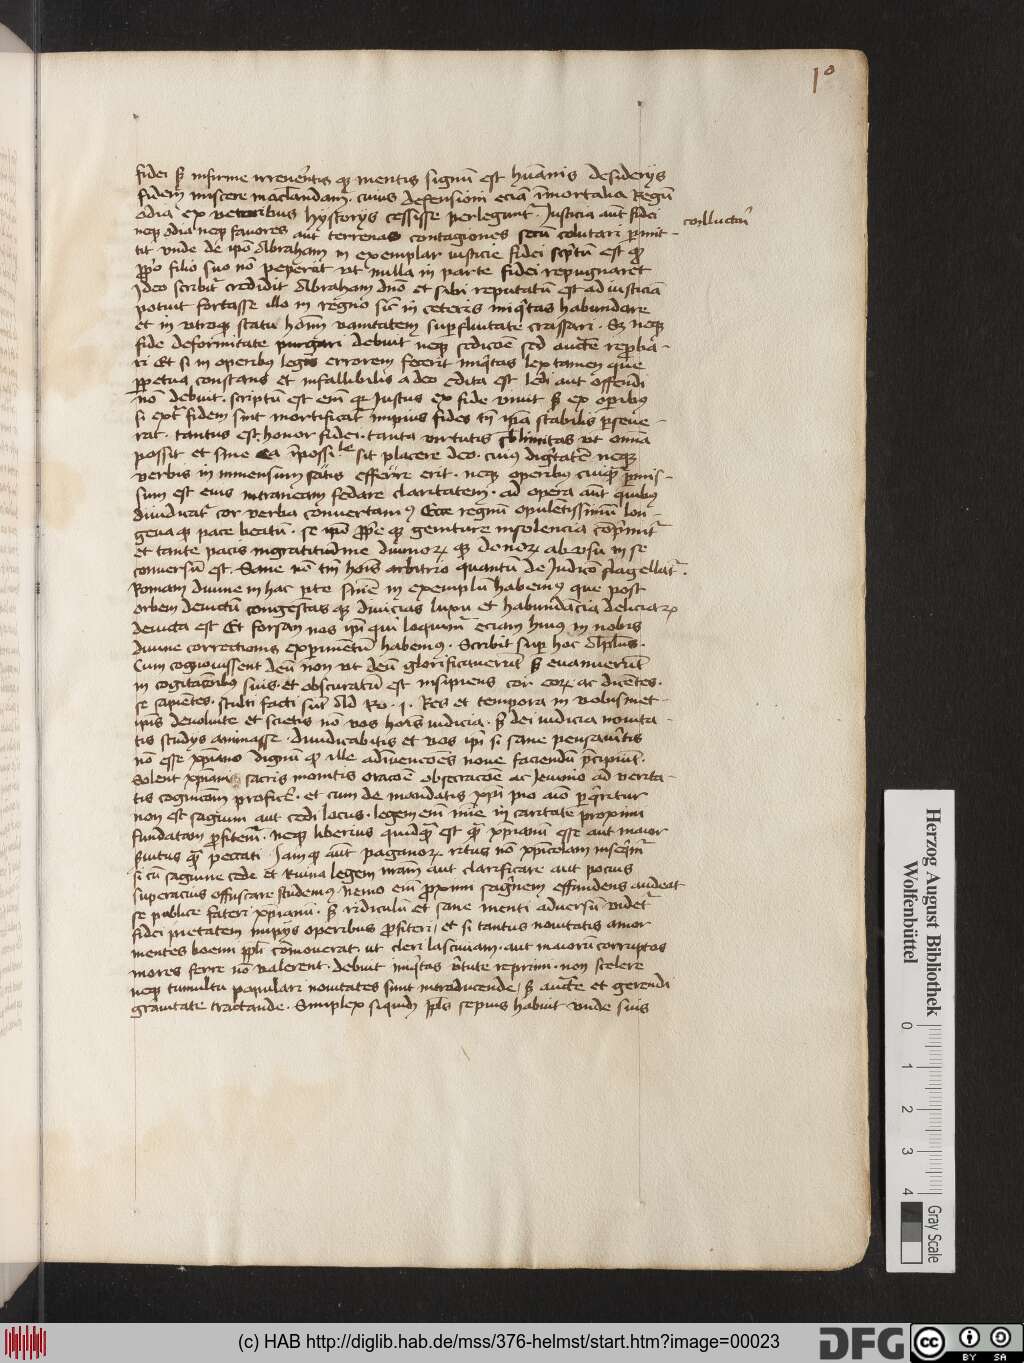 10
fidei sꝫ infirme irreuerentis qꝫ mentis signū est hūanis desiderijs
fidem miscere maculandam. cuius defensioni eciā īmortalia Regū
odia ex veteribus hystorys cessisse perlegunt̄. Justicia aut̄ fidei
colluctari
neqꝫ odia neqꝫ fauores aut terrenas contagiones secū colutari ꝑmit-
tit vnde de ip̄o Abraham in exemplar iusticie fidei scp̄tum est qꝫ
ꝓpō filio suo nō peperit vt nulla in parte fidei repugnaret
Ideo scribit̄ credidit Abraham dn̄o et sibi reputatū est ad iusticiā
potuit fortasse illo in regno sic̄ in ceteris iniq̄tas habundare
et in vtroqꝫ statu hoīm vanitatem supfluitate crassari. Sꝫ neqꝫ
fide deformitate purgari debuit neqꝫ sedicōe sed auctē reproba-
ri Et si in operibꝫ legis errorem fecerit iniq̄tas lex tamen que
ꝑpetua constans et infallibilis a deo edita est ledi aut offendi
nō debuit. scriptū est em̄ qꝫ Justus ex fide viuit sꝫ ex operibꝫ
si ext̄ fidem sint mortificat̄ impius fides tn̄ ip̄a stabilis ꝑseue-
rat. tantus est honor fidei. tanta virtutis sblimitas vt omīa
possit et sine ea īpossi^le sit placere deo. cuius dignitatē neqꝫ
verbis in inmensum satis efferre erit. neqꝫ operibꝫ cuiqꝫ ꝑmis-
sum est eius intraneam fedare claritatem. ad opera aut̄ quibꝫ
diuidicat̄ cor verba conuertamꝫ Ecce regnū opulētissimū lon-
geua qꝫ pace beatū. se ip̄o ꝓpe qꝫ geniture insolencia cōprimit̄
et tante pacis ingratitudine diuinorꝫ qꝫ donorꝫ abusu in se
conuersū est. Sane nō tm̄ hoīs arbitrio quantū dei Judicō flagellat̄.
Romam diuine in hac ꝑte sn̄ie in exemplū habemꝫ que post
orbem deuictū congestas qꝫ diuicias luxu et habundācia deliciarꝫ
deuicta est Et forsan nos ip̄i qui loquimr̄ eciam huiꝫ in nobis
diuine correctionis exp̱imentū habemꝫ. Scribit sup hoc Ap̄lus.
Cum cognouissent deū non vt deū glorificauerūt sꝫ euanuerūt
in cogitacōibꝫ suis. et obscuratū est insipiens cor eorꝫ ac dicētes.
se sapiētes. stulti facti sūt Ad Ro. 1. Res et tempora in vobismet-
ip̄is deuoluite et scietis nō vos hoīs iudicia. sꝫ dei iudicia nouita-
tis studijs animasse. diiudicabitis et vos ip̄i si sane pensaueritis
nō esse xp̄iano dignū qꝫ ille adinuencōes noue faciendū p̄cipiūt.
Solent xp̄iani sacris monitis oracōe obsecracōe ac Jeiunio ad verita-
tis cognicōem proficē. et cum de mandatis xp̄i pio aīo ꝑq̄ritur
non est sagium aut cedi locus. legem em̄ nīe in caritate proximi
fundatam ꝓfitem̄. neqꝫ liberius quidqꝫ est qꝫ xp̄ianū esse aut maior
ẜuitus qꝫ peccati. Jam qꝫ aut̄ paganorꝫ ritus nō xp̄icolam inseqm̄
si cū sagwine cede et Ruina legem nrām aut clarificare aut pocius
superacius offuscare studemꝫ. Nemo em̄ proximi sagwinem effundens audeat
se publice fateri xp̄ianū. sꝫ ridiculū et sane menti aduersū videt̄
fidei pietatem impijs operibus ꝓfiteri / et si tantus nouitatis amor
mentes boemi pp̄li cōmouerat. ut cleri lasciuiam. aut maiorū corruptos
mores ferre nō valerent. debuit iniq̄tas v̄tute reprimi. non scelere
neqꝫ tumultu populari nouitates sunt introducende / sꝫ auctē et gerendi
grauitate tractande. Simplex siquidꝫ pp̄ls sepius habuit vnde suis
Herzog August Bibliothek
Wolfenbüttel
0 1 2 3 4
Gray Scale
(c) HAB http://diglib.hab.de/mss/376-helmst/start.htm?image=00023
DFG
cc BY SA